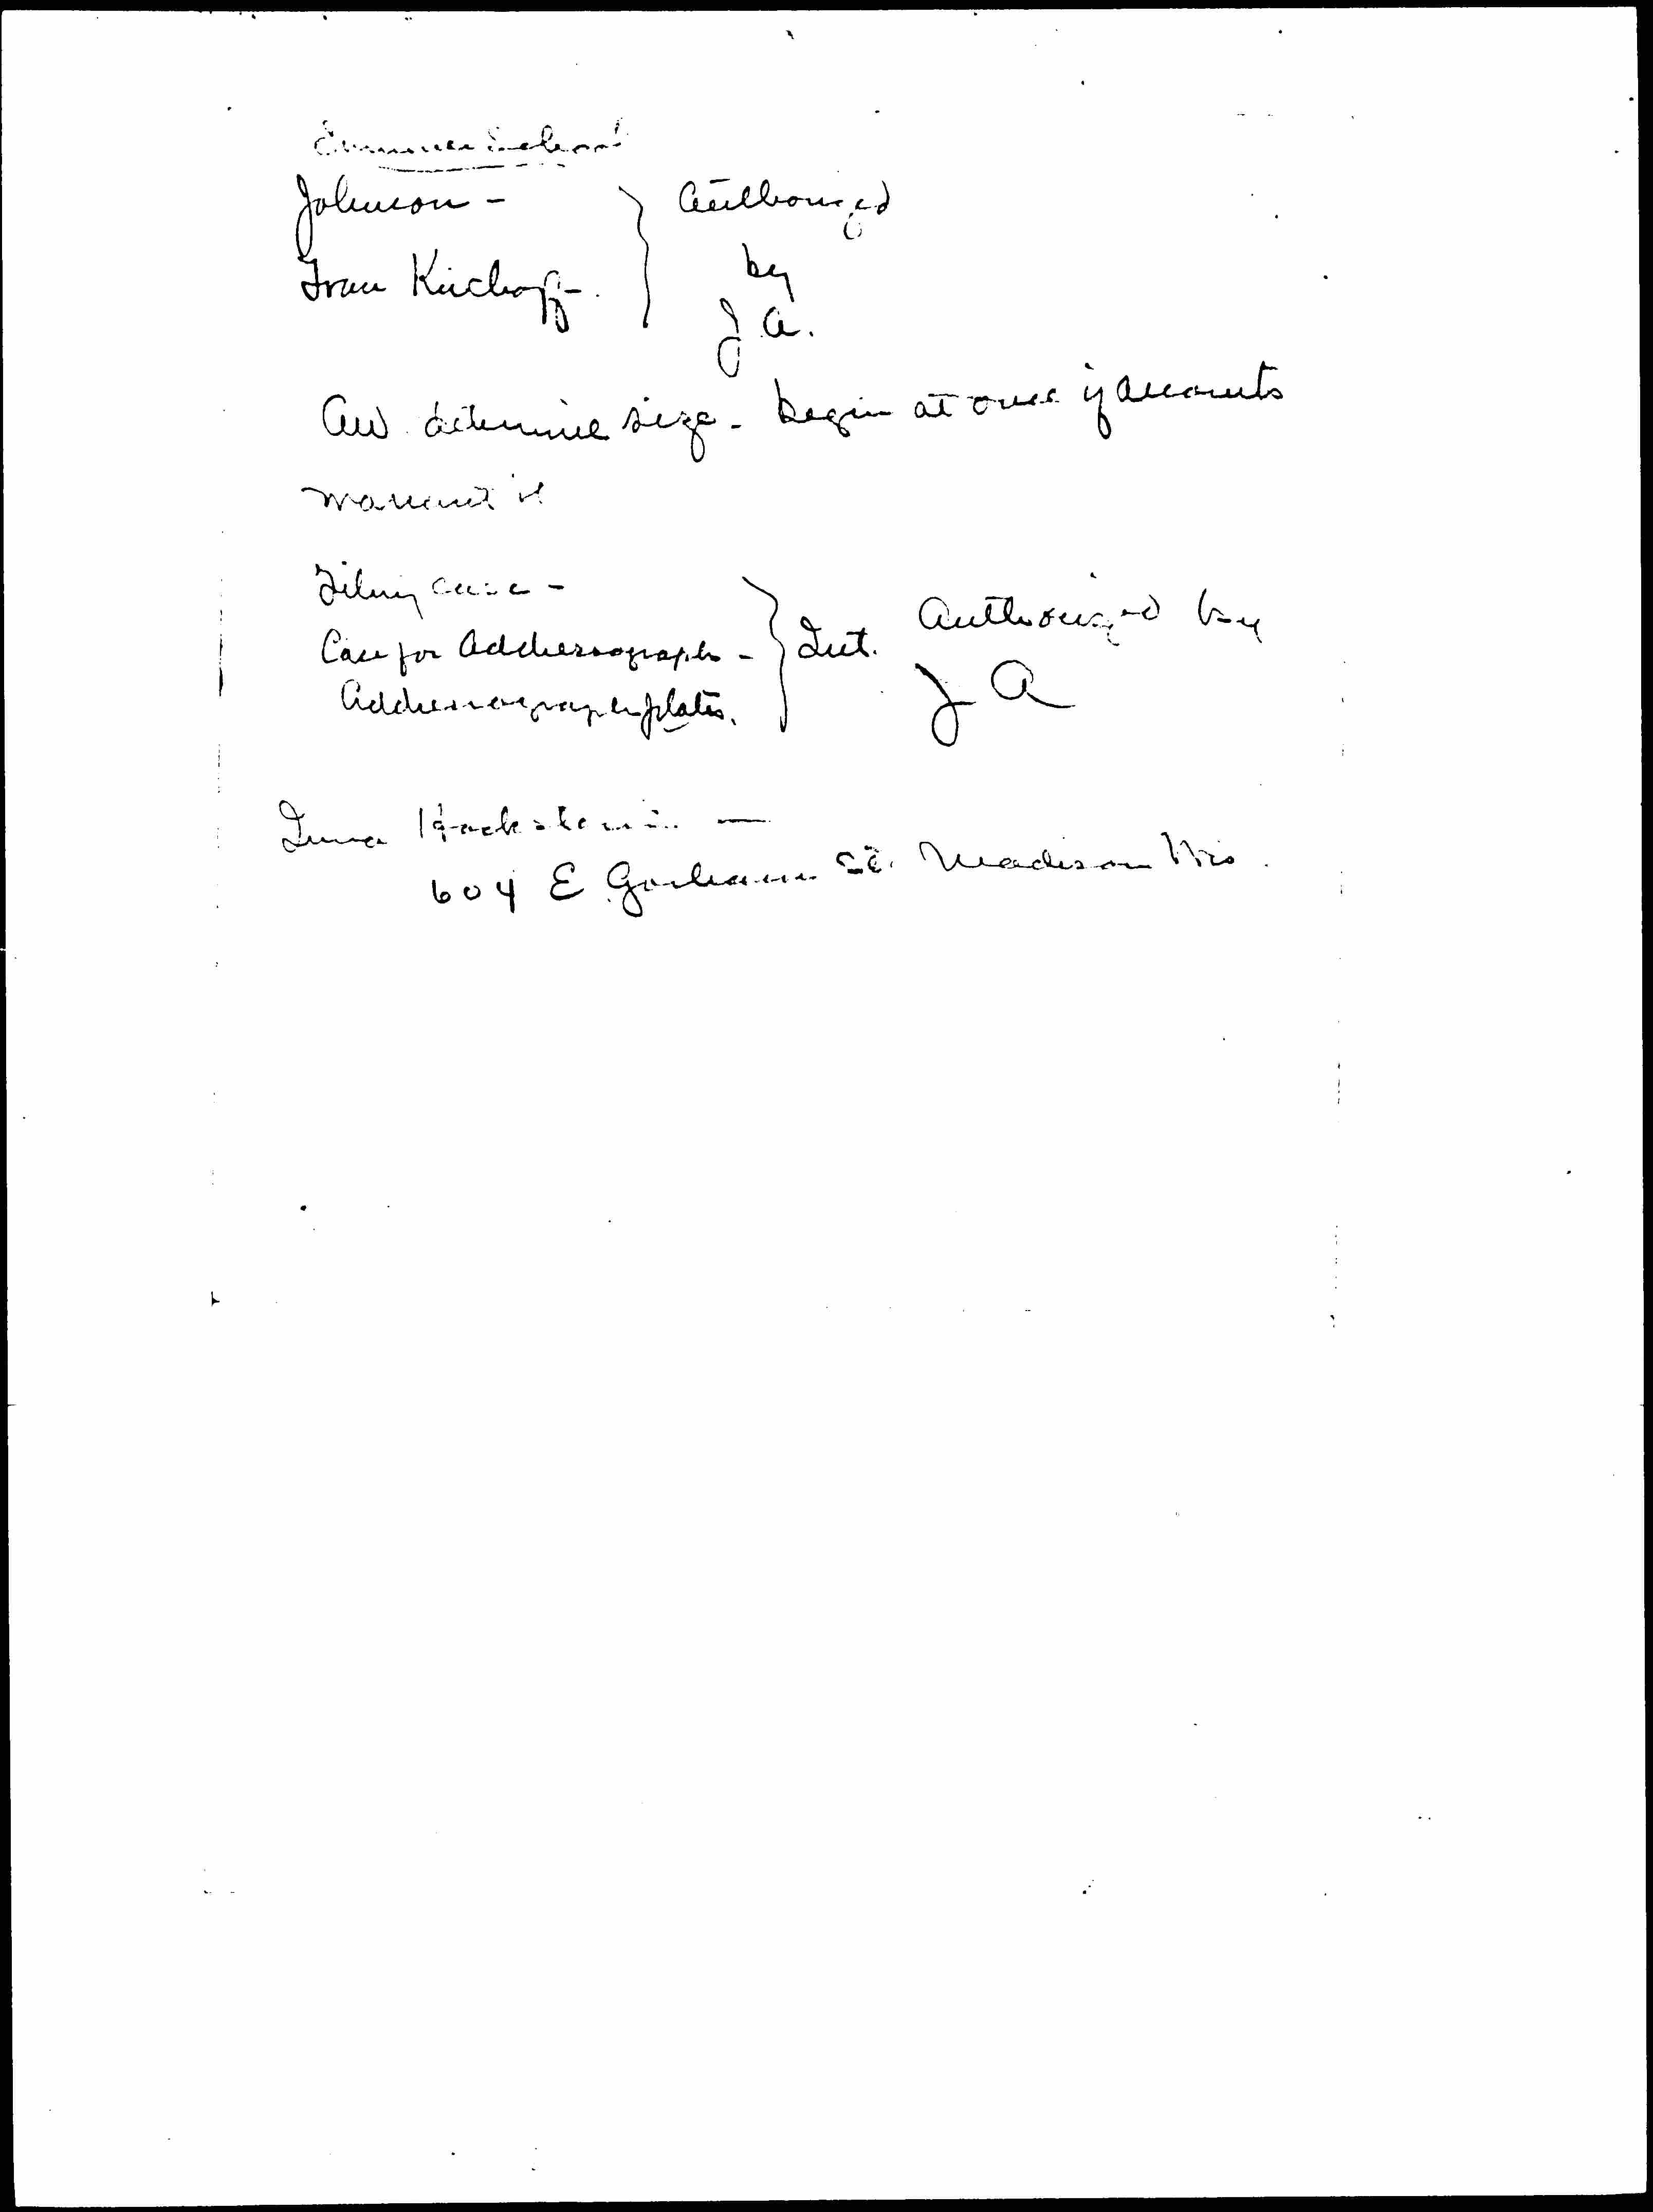 Summer School
Johnson - Authorized
Fran Kirchoff - by
J A.
AW determine size - begin at once if amounts
warrant it
Filing case -
Case for Addressograph - Int. Authorized by
Addressograph plates. J A
604 E Gorham St. Madison Wis.